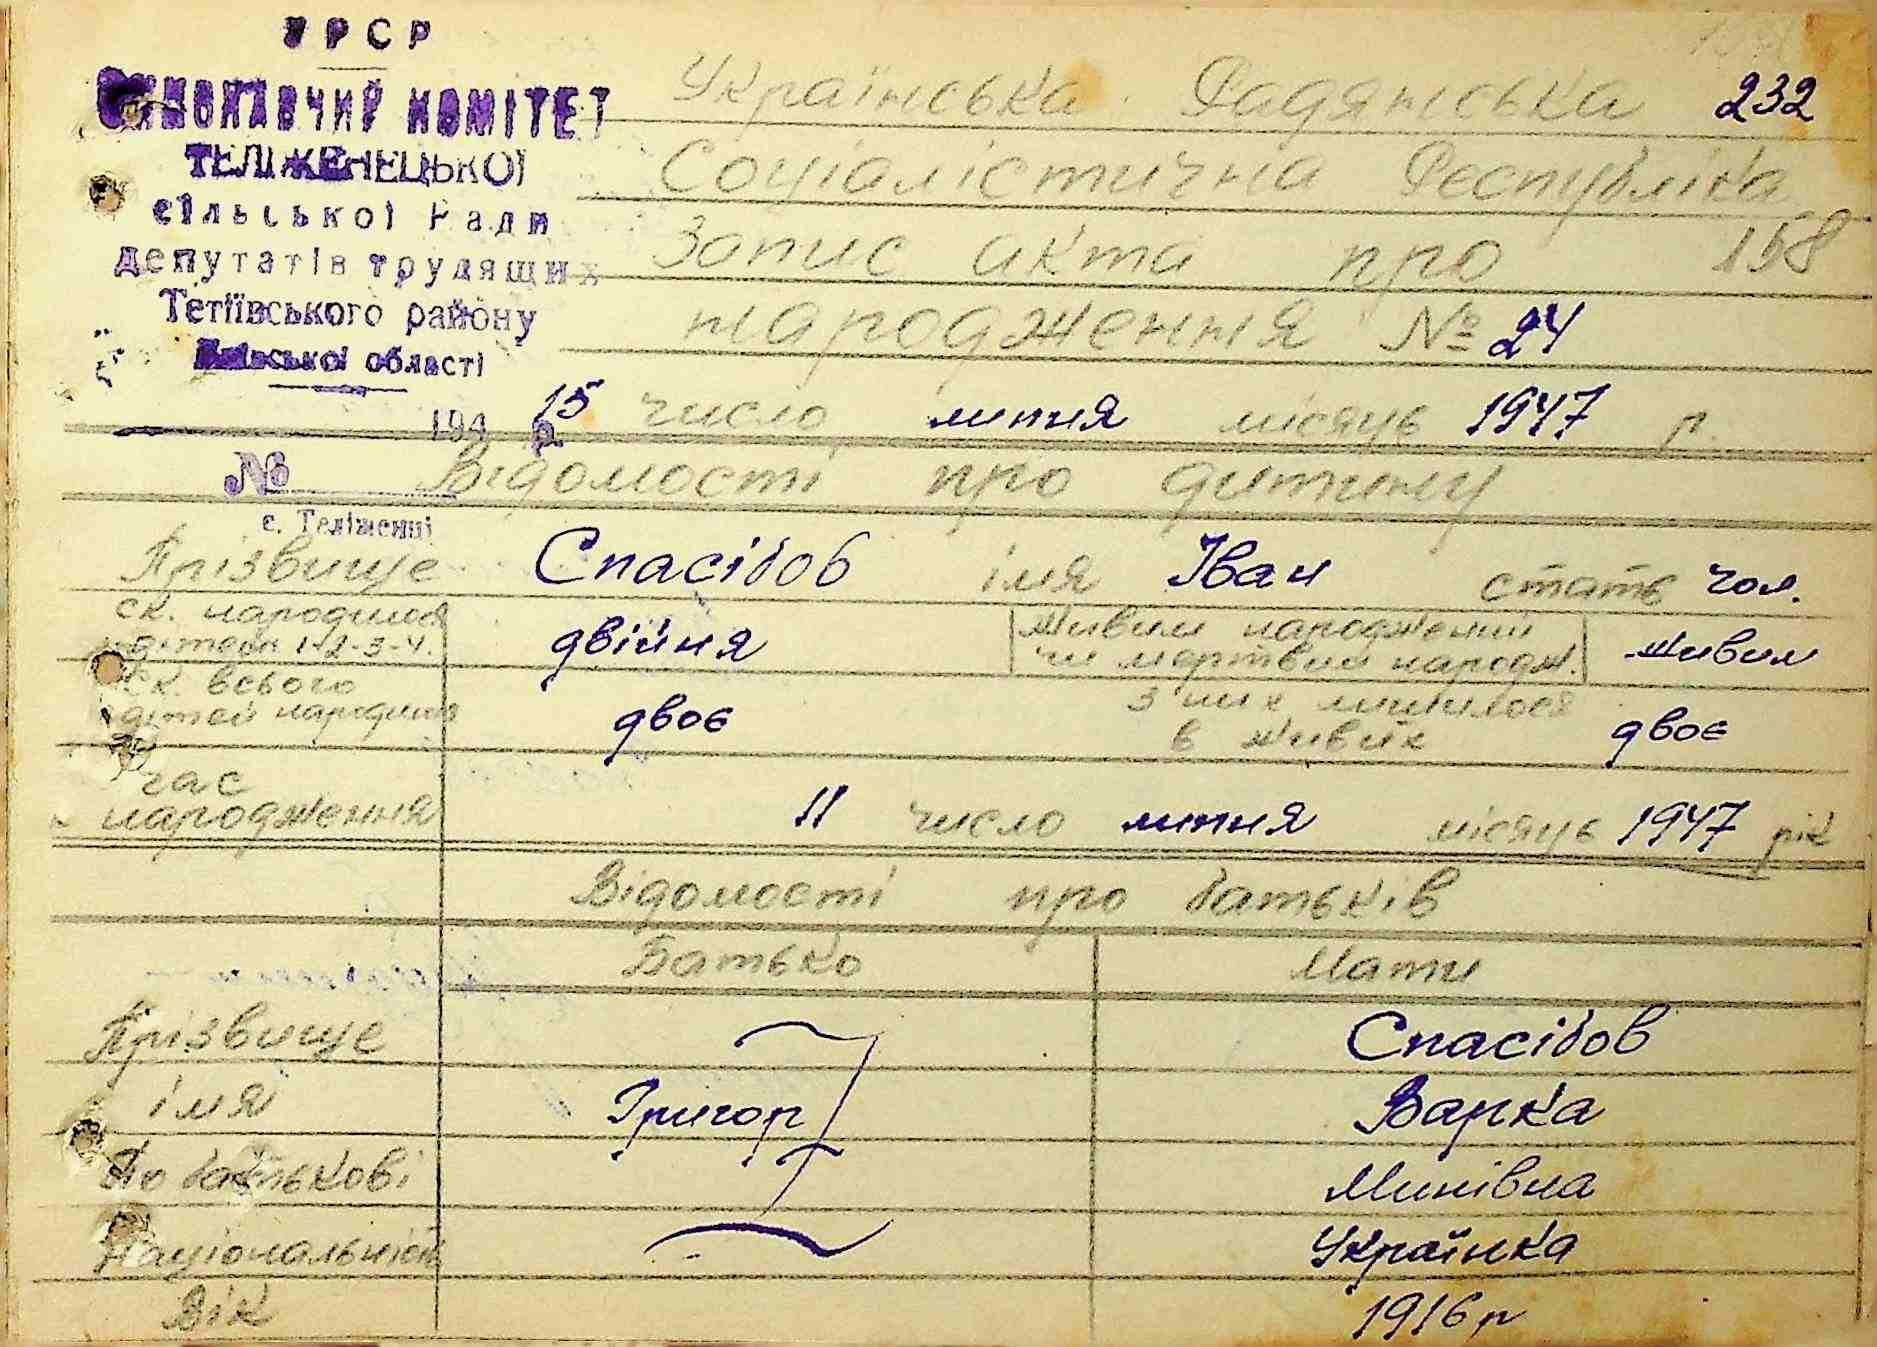 УРСР
ВИКОНАВЧИЙ КОМІТЕТ
ТЕЛІЖЕНЕЦЬКОЇ
сільської Ради
депутатів трудящих
Тетіївського району
Київської області
194 р.
№
с. Теліженці
Українська Радянська 232
Соціалістична Республіка
Запис акта про 158
народження № 24
15 число липня місяць 1947 р.
Відомості про дитину
Прізвище Спасібов імя Іван стать чол.
ск. народилося дітей 1-2-3-4. двійня Живим народжений чи мертвим народж. живим
ск. всього дітей народила двоє з них лишилося в живих двоє
час народження 11 число липня місяць 1947 рік
Відомості про батьків
Батько Мати
Прізвище Спасібов
імя Григор Варка
По батькові Минівна
Національність Українка
Вік 1916 р